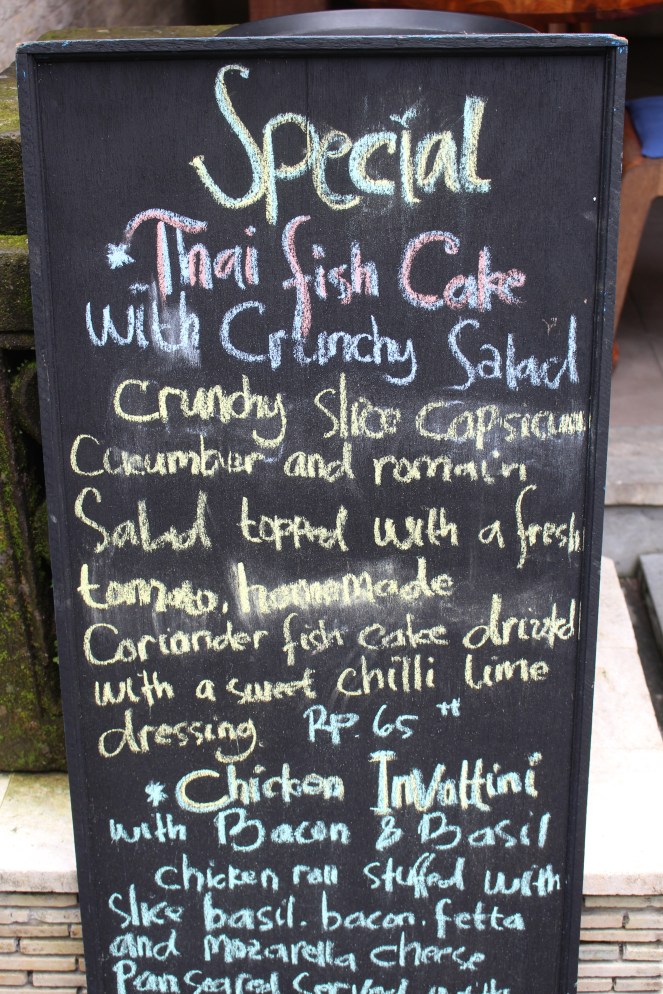 Special
* Thai fish Cake
with Crunchy Salad
Crunchy slice capsicum
Cucumber and romain
Salad topped with a fresh
tomato, homemade
Coriander fish cake drizzled
with a sweet chilli lime
dressing. RP. 65 ++
* Chicken Involtini
with Bacon & Basil
chicken roll stuffed with
slice basil. bacon. fetta
and mozarella cheese
Pan seared served with